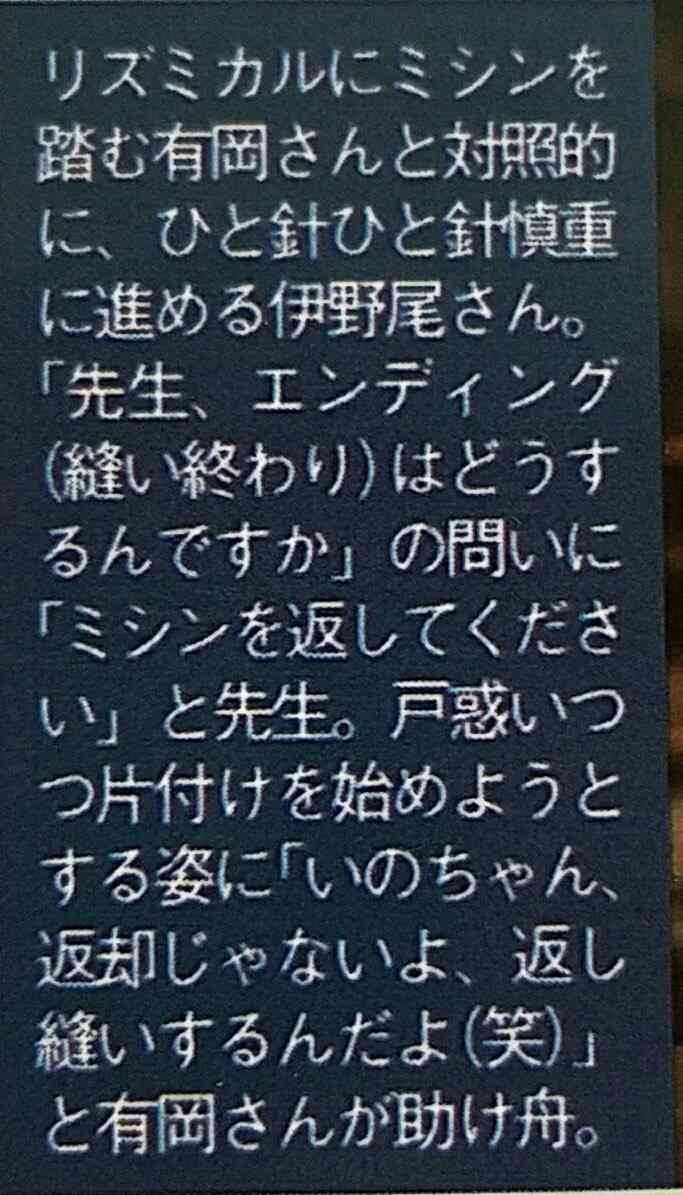 リズミカルにミシンを
踏む有岡さんと対照的
に、ひと針ひと針慎重
に進める伊野尾さん。
「先生、エンディング
(縫い終わり)はどうす
るんですか」の問いに
「ミシンを返してくださ
い」と先生。戸惑いつ
つ片付けを始めようと
する姿に「いのちゃん、
返却じゃないよ、返し
縫いするんだよ(笑)」
と有岡さんが助け舟。